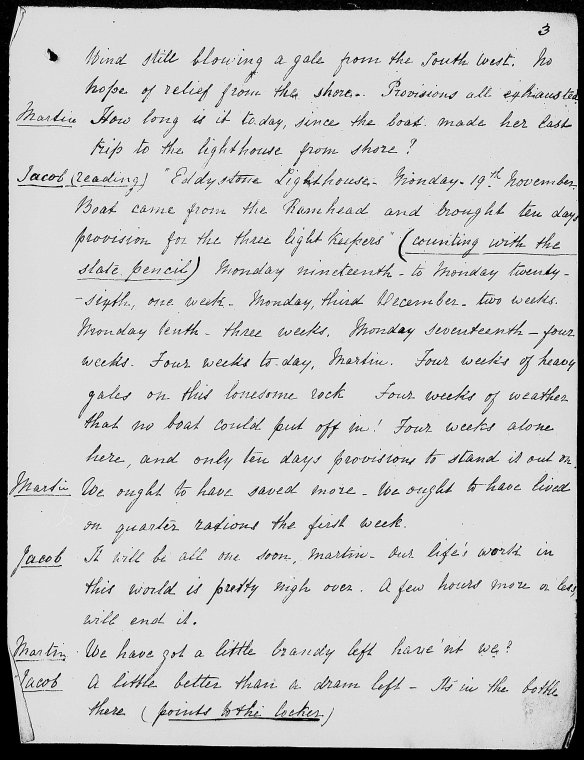 3
Wind still blowing a gale from the South West. No
hope of relief from the shore. Provisions all exhausted
Martin How long is it today, since the boat made her last
trip to the lighthouse from shore?
Jacob (reading) "Eddystone Lighthouse - Monday - 19th November
Boat came from the Ramhead and brought ten days
provision for the three light keepers" (counting with the
slate pencil) Monday nineteenth - to Monday twenty-
-sixth, one week - Monday, third December - two weeks.
Monday tenth - three weeks. Monday seventeenth - four
weeks. Four weeks to-day, Martin. Four weeks of heavy
gales on this lonesome rock Four weeks of weather
that no boat could put off in! Four weeks alone
here, and only ten days provisions to stand it out on.
Martin We ought to have saved more - We ought to have lived
on quarter rations the first week.
Jacob It will be all one soon, Martin - Our life's work in
this world is pretty nigh over. A few hours more or less,
will end it.
Martin We have got a little brandy left have'nt we?
Jacob A little better than a dram left - Its in the bottle
there (points to the locker)